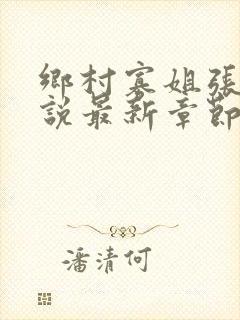 鄉村寡姐張
說最新章節
潘清何